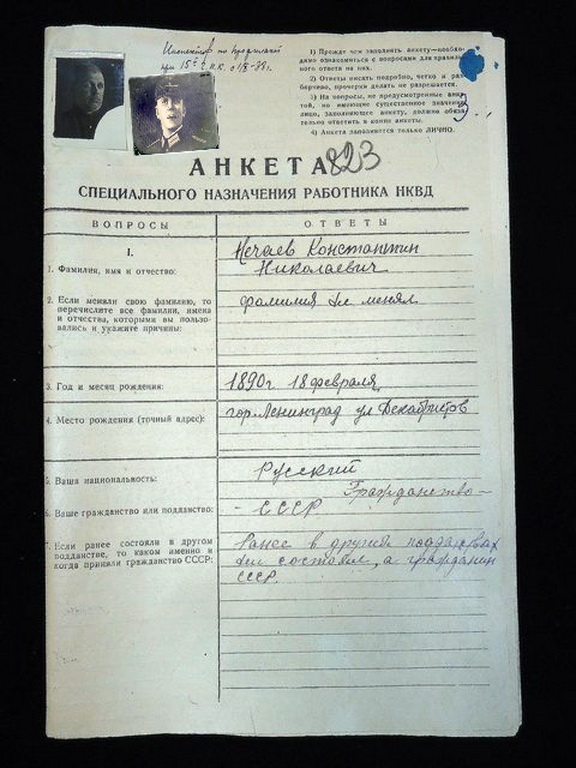 1) Прежде чем заполнить анкету—необхо-
димо ознакомиться с вопросами для правиль-
ного ответа на них.
2) Ответы писать подробно, четко и раз-
борчиво, прочерки делать не разрешается.
3) На вопросы, не предусмотренные анке-
той, но имеющие существенное значение,
лицо, заполняющее анкету, должно обяза-
тельно ответить в конце анкеты.
4) Анкета заполняется только ЛИЧНО.
АНКЕТА 823
СПЕЦИАЛЬНОГО НАЗНАЧЕНИЯ РАБОТНИКА НКВД
ВОПРОСЫ
ОТВЕТЫ
I.
1. Фамилия, имя и отчество:
Нечаев Константин
Николаевич
2. Если меняли свою фамилию, то
перечислите все фамилии, имена
и отчества, которыми вы пользо-
вались и укажите причины:
фамилия не менял
3. Год и месяц рождения:
1890г 18 февраля
4. Место рождения (точный адрес):
гор. Ленинград ул Декабристов
5. Ваша национальность:
Русский
6. Ваше гражданство или подданство:
Гражданство –
– СССР
7. Если ранее состояли в другом
подданстве, то каком именно и
когда приняли гражданство СССР:
Ранее в другом
не состоял, а гражданин
СССР.